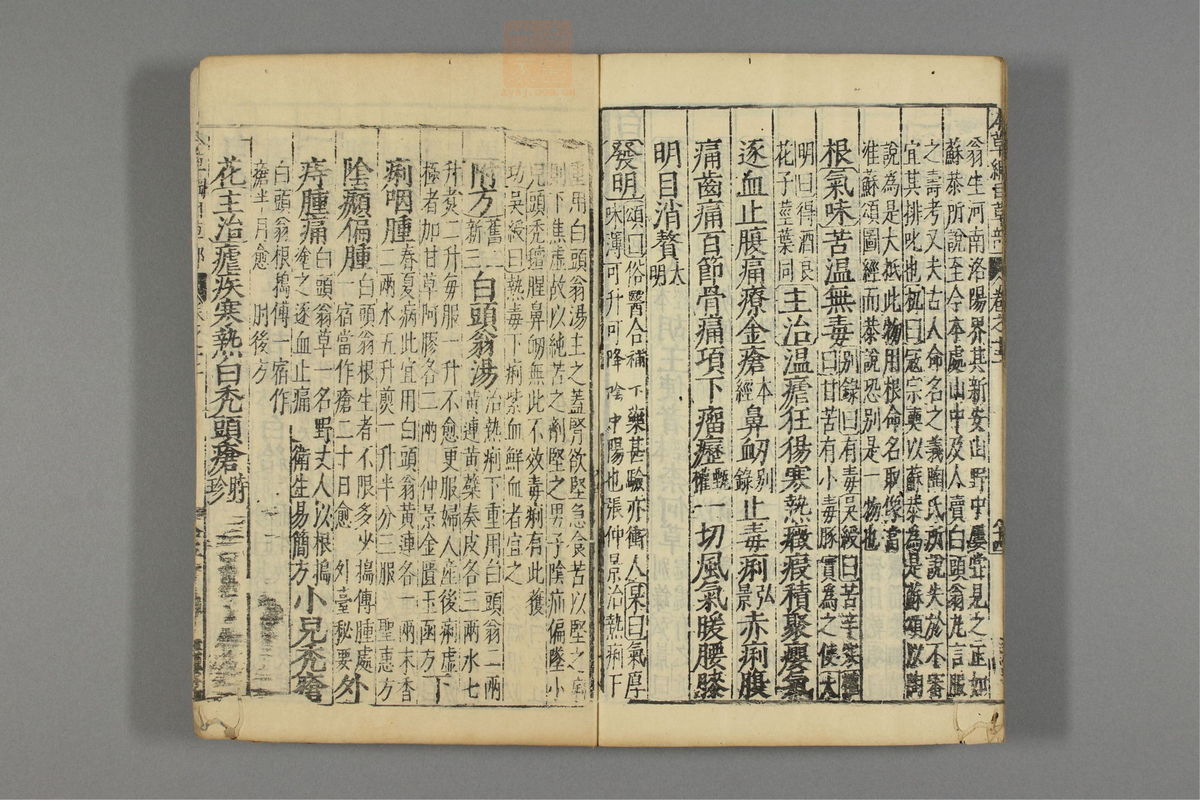 翁生河南洛陽界其新安山野中屢嘗見之正如
蘇恭所說至今本處山中及人賣白頭翁丸言服
之壽考又失古人命名之義陶氏所說失於不審
宜其排叱也機曰寇宗奭以蘇恭為是蘇頌以陶
說為是大抵此物用根命名取像當
准蘇頌圖經而恭說恐別是一物也
根氣味苦溫無毒別錄曰有毒吳綬曰苦辛寒權
曰甘苦有小毒豚實為之使大
明曰得酒良
花子莖葉同主治溫瘧狂㑥寒熱癥瘕積聚癭氣
逐血止腹痛療金瘡本經鼻衂別錄止毒痢弘景赤痢腹
痛齒痛百節骨痛項下瘤癧甄權一切風氣暖腰膝
明目消贅大明
發明頌曰俗醫合補下藥甚驗亦衝人杲曰氣厚
味薄可升可降陰中陽也張仲景治熱痢下
重用白頭翁湯主之蓋腎欲堅急食苦以堅之痢
則下焦虛故以純苦之劑堅之男子陰疝偏墜小
兒頭禿羶腥鼻衂無此不效毒痢有此獲
功吳綬曰熱毒下痢紫血鮮血者宜之
附方舊二新三白頭翁湯治熱痢下重用白頭翁二兩
黃連黃蘗秦皮各三兩水七
升煮二升每服一升不愈更服婦人產後痢虛
極者加甘草阿膠各二兩仲景金匱玉函方下
痢咽腫春夏病此宜用白頭翁黃連各一兩木香
二兩水五升煎一升半分三服聖惠方
陰㿗偏腫白頭翁根生者不限多少搗傅腫處
一宿當作瘡二十日愈外臺秘要外
痔腫痛白頭翁草一名野丈人以根搗
塗之逐血止痛衛生易簡方小兒禿瘡
白頭翁根搗傅一宿作
瘡半月愈肘後方
花主治瘧疾寒熱白禿頭瘡時珍